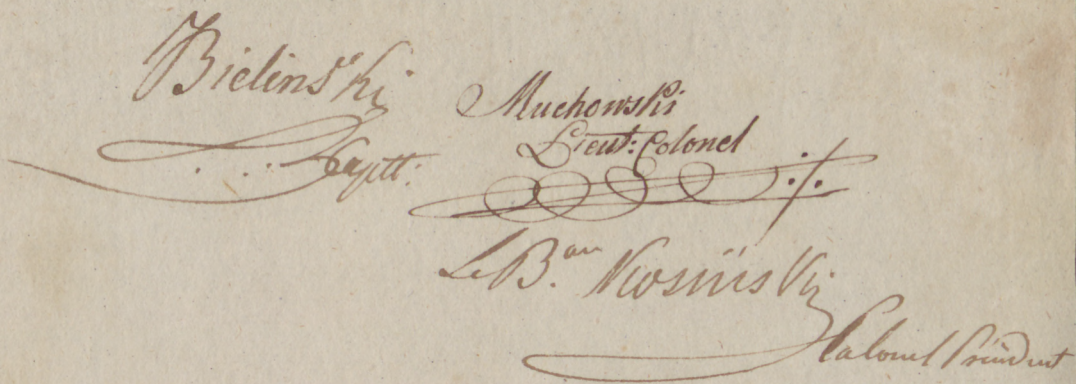 Bielinski
Capitt:
Muchowski
Lieut: Colonel
Le B.on
Colonel Président